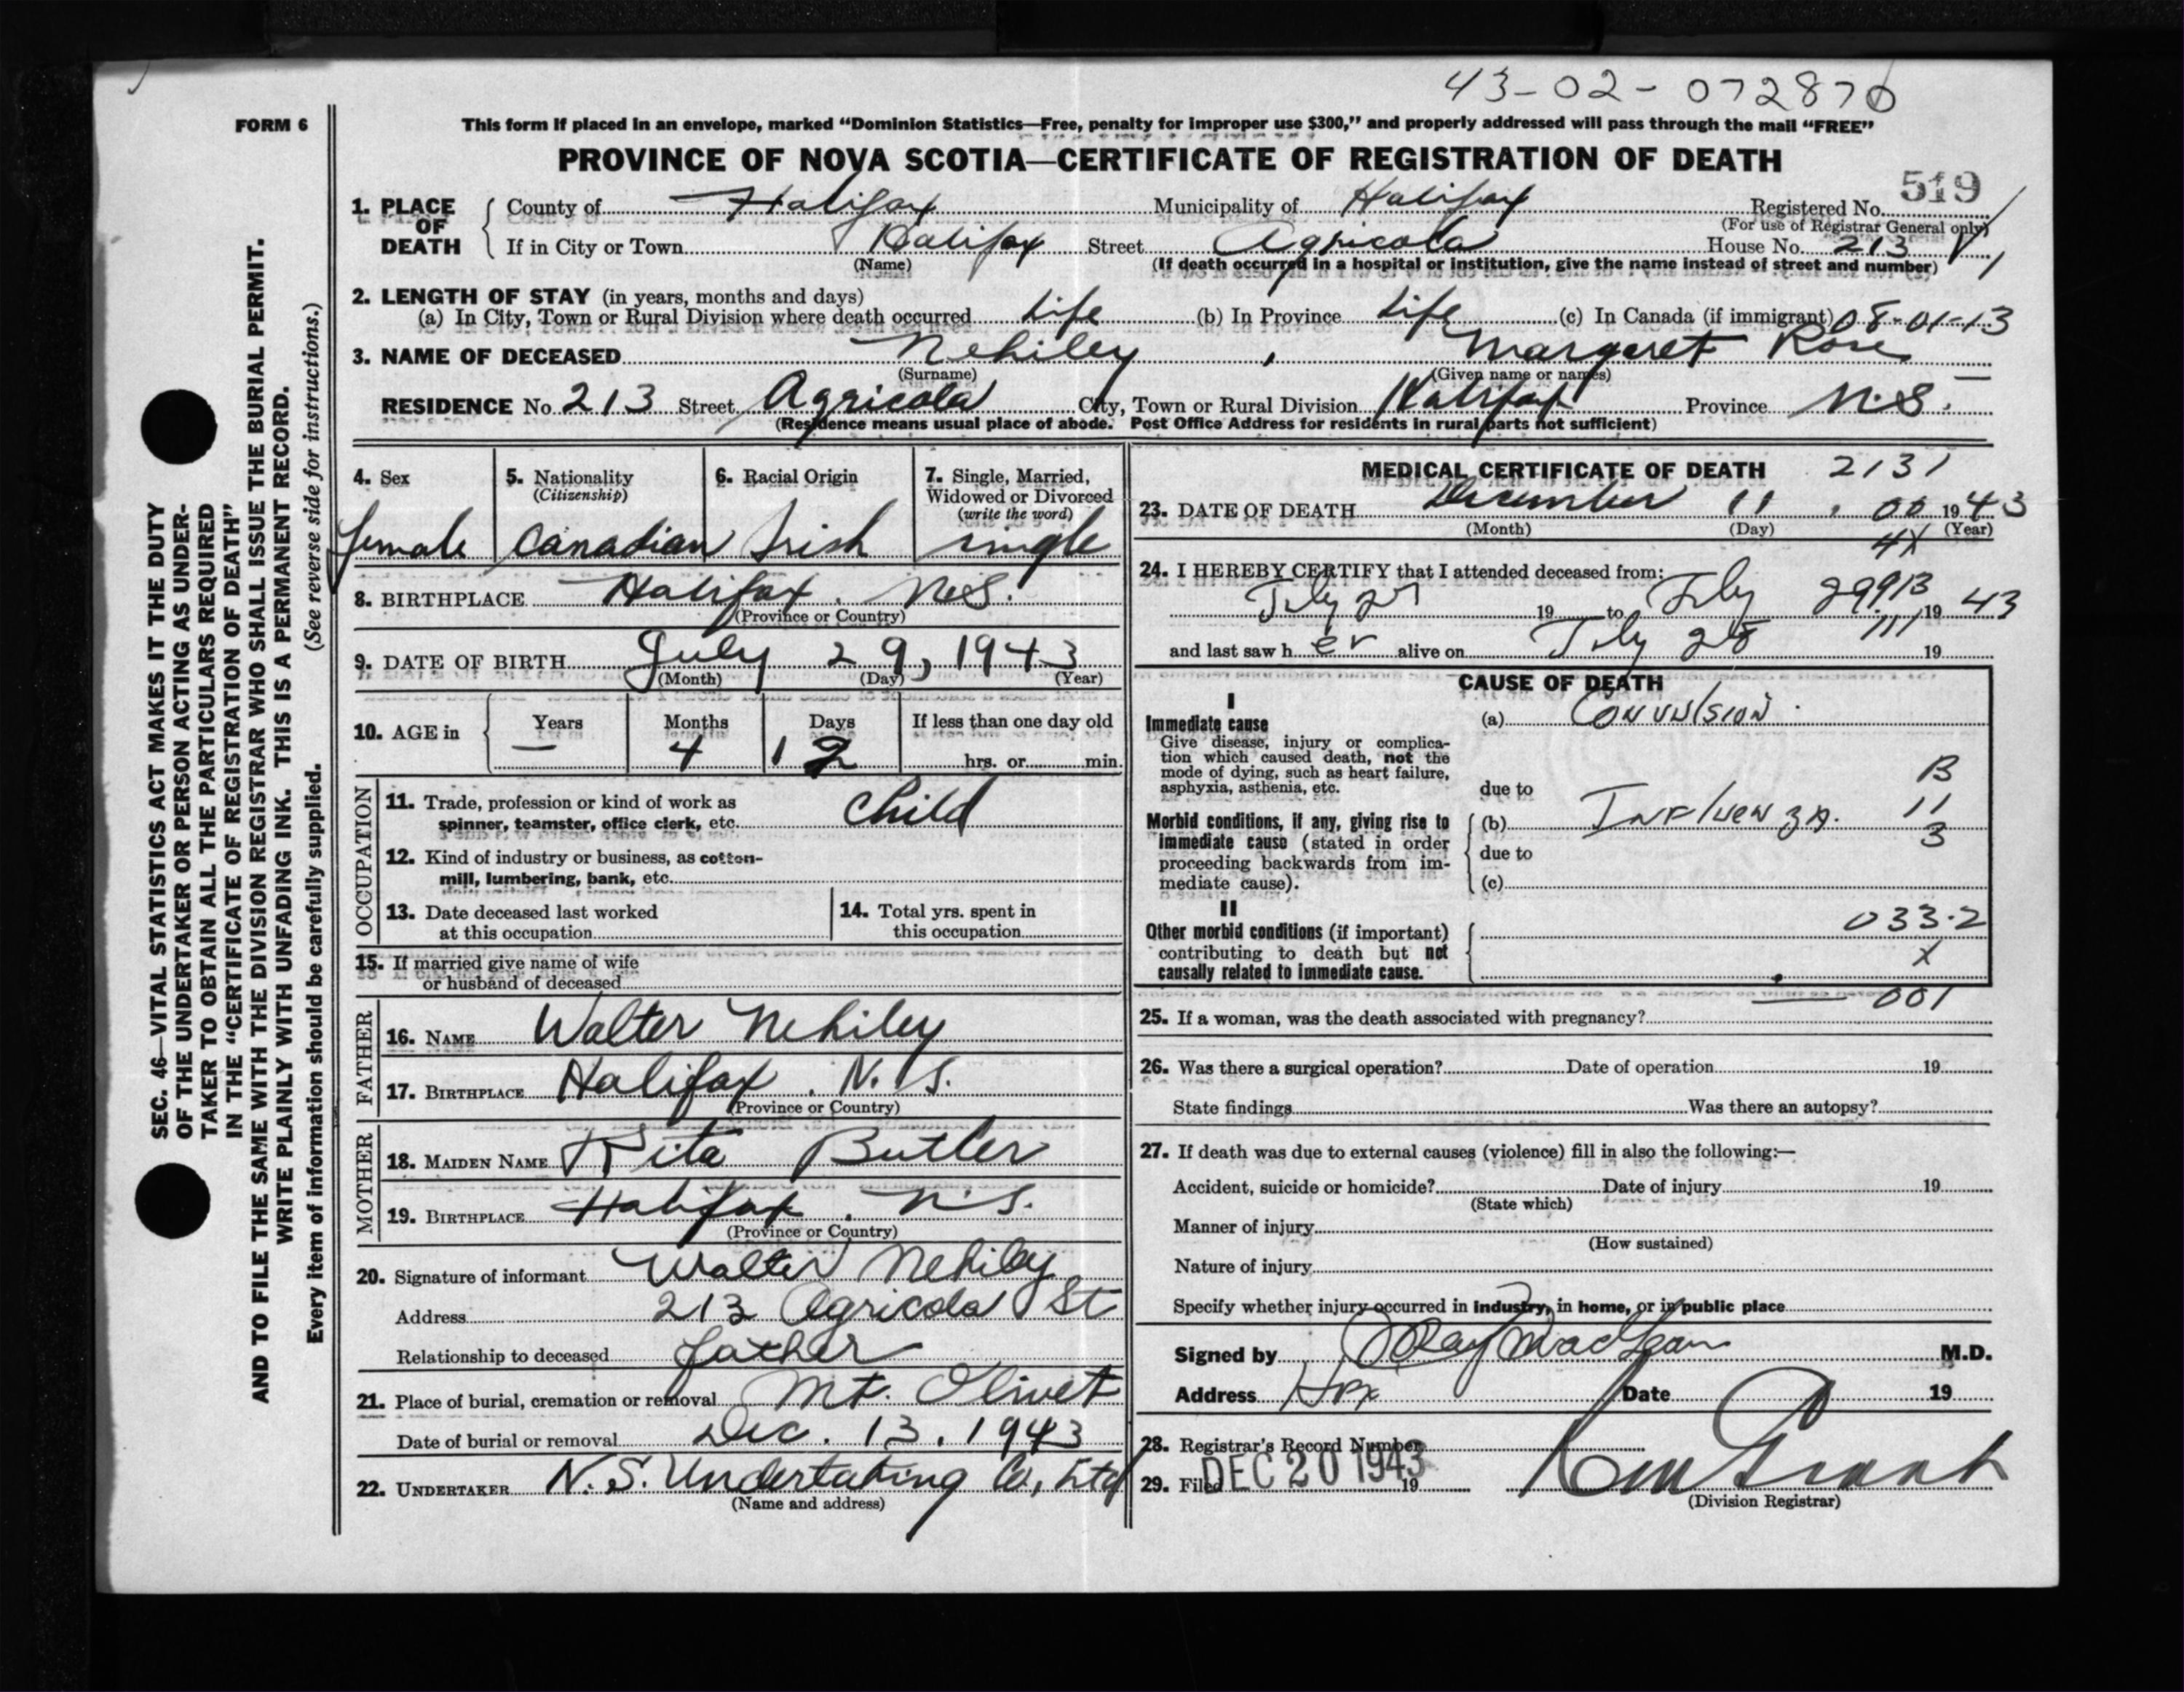 43-02-072870
FORM 6
This form if placed in an envelope, marked “Dominion Statistics—Free, penalty for improper use $300,” and properly addressed will pass through the mail “FREE”
PROVINCE OF NOVA SCOTIA—CERTIFICATE OF REGISTRATION OF DEATH
519
1. PLACE OF DEATH County of Halifax Municipality of Halifax Registered No.
(For use of Registrar General only)
If in City or Town Halifax Street Agricola House No. 213
(Name) (If death occurred in a hospital or institution, give the name instead of street and number)
2. LENGTH OF STAY (in years, months and days)
(a) In City, Town or Rural Division where death occurred Life (b) In Province Life (c) In Canada (if immigrant) 08-01-13
3. NAME OF DECEASED Nehiley, Margaret Rose
(Surname) (Given name or names)
RESIDENCE No. 213 Street Agricola City, Town or Rural Division Halifax Province N.S.
(Residence means usual place of abode. Post Office Address for residents in rural parts not sufficient)
4. Sex 5. Nationality (Citizenship) 6. Racial Origin 7. Single, Married, Widowed or Divorced (write the word)
female Canadian Irish single
8. BIRTHPLACE Halifax. N.S.
(Province or Country)
9. DATE OF BIRTH July 29, 1943
(Month) (Day) (Year)
10. AGE in Years Months Days If less than one day old
— 4 12 hrs. or min.
OCCUPATION
11. Trade, profession or kind of work as
spinner, teamster, office clerk, etc. Child
12. Kind of industry or business, as cotton-
mill, lumbering, bank, etc.
13. Date deceased last worked
at this occupation
14. Total yrs. spent in
this occupation
15. If married give name of wife
or husband of deceased
FATHER
16. NAME Walter Nehiley
17. BIRTHPLACE Halifax. N.S.
(Province or Country)
MOTHER
18. MAIDEN NAME Rita Butler
19. BIRTHPLACE Halifax. N.S.
(Province or Country)
20. Signature of informant Walter Nehiley
Address 213 Agricola St
Relationship to deceased father
21. Place of burial, cremation or removal Mt. Olivet
Date of burial or removal Dec. 13. 1943
22. UNDERTAKER N.S. Undertaking Co, Ltd
(Name and address)
MEDICAL CERTIFICATE OF DEATH 2131
23. DATE OF DEATH December 11, 00 1943
(Month) (Day) (Year)
4X
24. I HEREBY CERTIFY that I attended deceased from:
July 27 19 to July 29 19 43
and last saw her alive on July 28 19
CAUSE OF DEATH
I
Immediate cause
Give disease, injury or complica-
tion which caused death, not the
mode of dying, such as heart failure,
asphyxia, asthenia, etc.
(a) Convulsion.
due to
Morbid conditions, if any, giving rise to
immediate cause (stated in order
proceeding backwards from im-
mediate cause).
(b) Influenza.
due to
(c)
B
11
3
II
Other morbid conditions (if important)
contributing to death but not
causally related to immediate cause.
033.2
X
001
25. If a woman, was the death associated with pregnancy?
26. Was there a surgical operation? Date of operation 19
State findings Was there an autopsy?
27. If death was due to external causes (violence) fill in also the following:—
Accident, suicide or homicide? Date of injury 19
(State which)
Manner of injury
(How sustained)
Nature of injury
Specify whether injury occurred in industry, in home, or in public place
Signed by Ray MacLean M.D.
Address Hfx Date 19
28. Registrar's Record Number
29. Filed DEC 20 1943 19
(Division Registrar)
SEC. 46—VITAL STATISTICS ACT MAKES IT THE DUTY
OF THE UNDERTAKER OR PERSON ACTING AS UNDER-
TAKER TO OBTAIN ALL THE PARTICULARS REQUIRED
IN THE “CERTIFICATE OF REGISTRATION OF DEATH”
AND TO FILE THE SAME WITH THE DIVISION REGISTRAR WHO SHALL ISSUE THE BURIAL PERMIT.
WRITE PLAINLY WITH UNFADING INK. THIS IS A PERMANENT RECORD.
Every item of information should be carefully supplied. (See reverse side for instructions.)